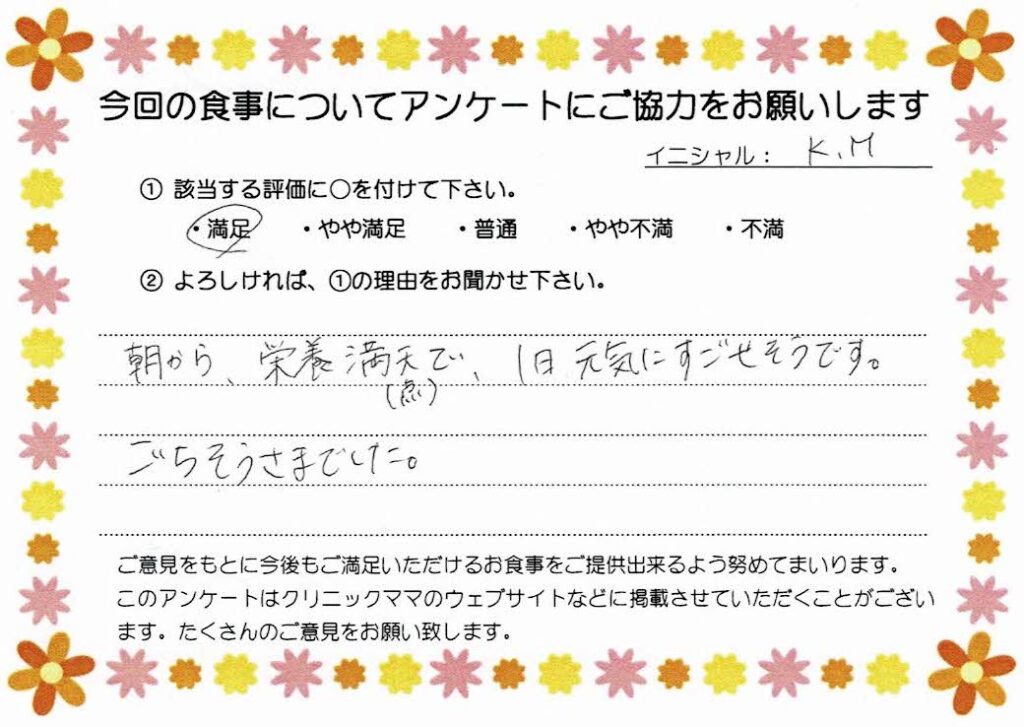 今回の食事についてアンケートにご協力をお願いします
イニシャル: K.M
① 該当する評価に○を付けて下さい。
・満足 ・やや満足 ・普通 ・やや不満 ・不満
② よろしければ、①の理由をお聞かせ下さい。
朝から、栄養満天で、1日元気にすごせそうです。
(点)
ごちそうさまでした。
ご意見をもとに今後もご満足いただけるお食事をご提供出来るよう努めてまいります。
このアンケートはクリニックママのウェブサイトなどに掲載させていただくことがござい
ます。たくさんのご意見をお願い致します。